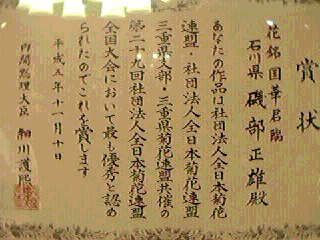 賞状
花銘 国華君臨
石川県 磯部正雄殿
あなたの作品は社団法人全日本菊花
連盟・社団法人全日本菊花連盟
三重県支部・三重県菊花連盟共催の
第二十九回社団法人全日本菊花連盟
全国大会において最も優秀と認め
られたのでこれを賞します
平成五年十一月十日
内閣総理大臣 細川護熙